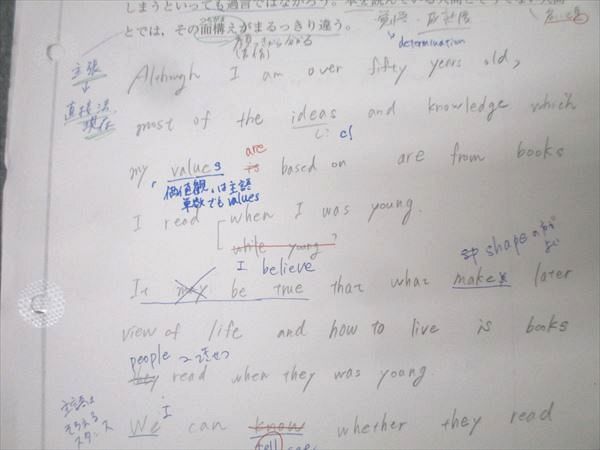 しまうといっても過言ではなかろう。本を読んでいる人間とそうでない人間
とでは、その面構えがまるっきり違う。
determination
主張
↓
直接法
現在
Although I am over fifty years old,
most of the ideas and knowledge which
are
my values is based on are from books
価値観。は主語
単数でもvalues
I read when I was young.
while young?
I believe
It may be true that what makes later
shape
view of life and how to live is books
people
they read when they was young.
主語は
そろえる
スタンス
I
We can know whether they read
tell